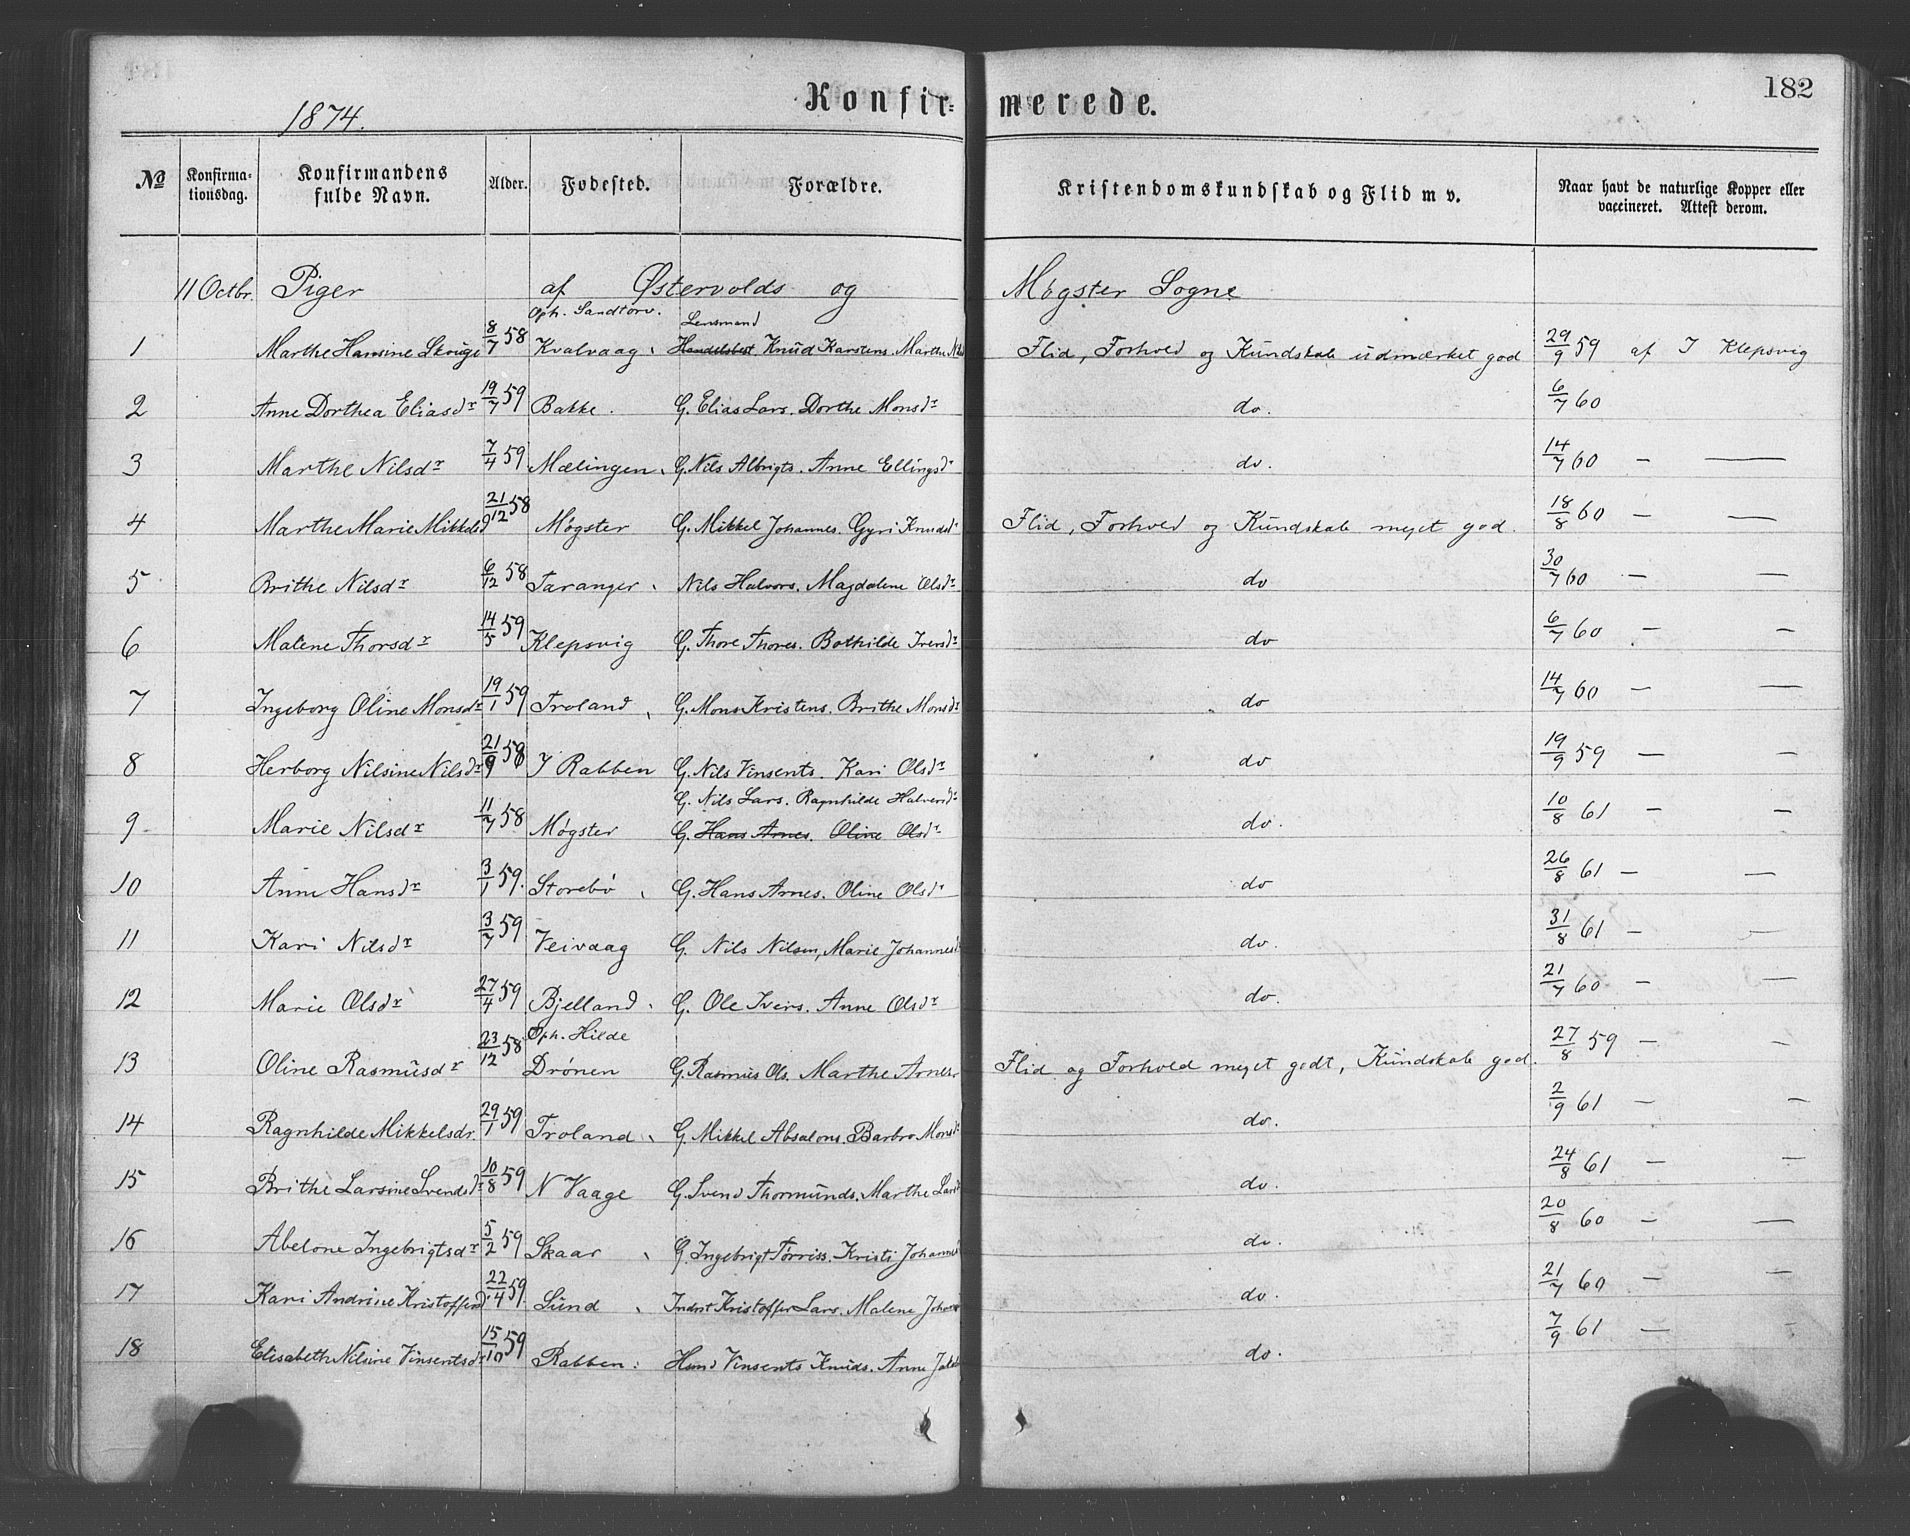 182
1874.
Konfir= merede.
No Konfirma- tionsdag. Konfirmandens fulde Navn. Alder. Fødested. Forældre. Kristendomskundskab og Flid m v. Naar havt de naturlige Kopper eller vaccineret. Attest derom.
11 Octbr. Piger af Østervolds og Møgster Sogne
Oph. Sandtorv. Lensmand
1 Marthe Hansine Skruge 8/7 58 Kvalvaag Handelsbest Knud Karstens. Marthe Nils Flid, Forhold og Kundskab udmærket god 29/9 59 af J Klepsvig
2 Anne Dorthea Eliasdr 19/7 59 Bakke. G. Elias Lars. Dorthe Monsdr do. 6/7 60
3 Marthe Nilsdr 7/4 59 Mælingen G. Nils Albrigts. Anne Ellingsdr do. 14/7 60 — —
4 Marthe Marie Mikkelsd 21/12 58 Møgster G. Mikkel Johannes. Gyri Knudsdr Flid, Forhold og Kundskab meget god. 18/8 60 — —
5 Brithe Nilsdr 6/12 58 Taranger Nils Halvors. Magdalene Olsdr do 30/7 60 — —
6 Malene Thorsdr 14/5 59 Klepsvig G. Thore Thores. Bothilde Iversdr do 6/7 60 — —
7 Ingeborg Oline Monsdr 19/1 59 Troland G. Mons Kristens. Brithe Monsdr do 14/7 60 — —
8 Herborg Nilsine Nilsdr 21/9 58 I Rabben G. Nils Vinsents. Kari Olsdr do 19/9 59 — —
G. Nils Lars. Ragnhilde Halversdr
9 Marie Nilsdr 11/7 58 Møgster G. Hans Arnes. Oline Olsdr do. 10/8 61 — —
10 Anne Hansdr 3/1 59. Storebø G. Hans Arnes. Oline Olsdr do 26/8 61 — —
11 Kari Nilsdr 3/7 59 Veivaag G. Nils Nilsen, Marie Johannesd do. 31/8 61 — —
12 Marie Olsdr 27/4 59 Bjelland. G. Ole Ivers. Anne Olsdr do. 21/7 60 — —
Oph. Hilde
13 Oline Rasmusdr 23/12 58 Drønen G. Rasmus Ols. Marthe Arnesr Flid og Forhold meget godt, Kundskab god. 27/8 59 — —
14 Ragnhilde Mikkelsdr. 29/1 59 Troland G. Mikkel Absalons. Barbro Monsdr do. 2/9 61 — —
15 Brithe Larsine Svendsdr 10/8 59 N Vaage G. Svend Thormunds. Marthe Larsd do. 24/8 61 — —
16 Abelone Ingebrigtsdr 5/2 59 Skaar G. Ingebrigt Tørriss. Kristi Johannes do. 20/8 60 — —
17 Kari Andrine Kristoffersd 22/4 59. Sund Indrst Kristoffer Lars. Malene Johan do. 21/7 60 — —
18 Elisabeth Nilsine Vinsentsdr 15/10 59 Rabben. Hmd Vinsents Knuds. Anne Jakob do. 7/9 61 — -